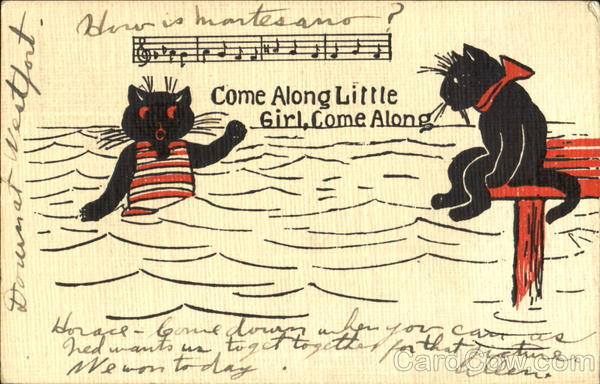 How is montesano?
Come Along Little
Girl, Come Along
Down at Westport.
Horace - Come down when you can as
Ned wants us to get together for that picture
We won today.
CardCow.com